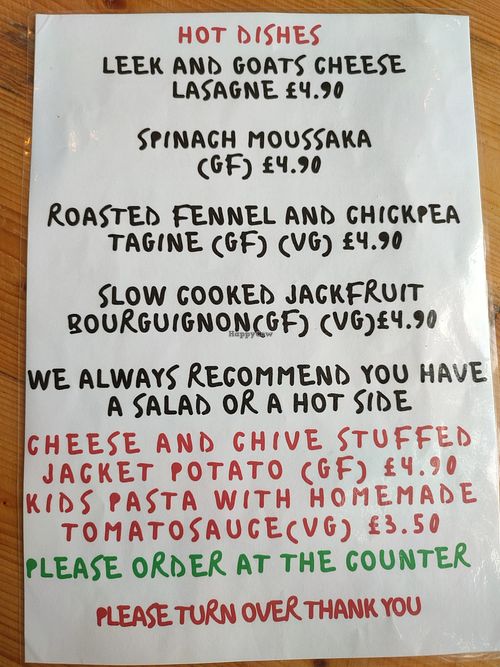 HOT DISHES
LEEK AND GOATS CHEESE
LASAGNE £4.90
SPINACH MOUSSAKA
(GF) £4.90
ROASTED FENNEL AND CHICKPEA
TAGINE (GF) (VG) £4.90
SLOW COOKED JACKFRUIT
BOURGUIGNON(GF) (VG)£4.90
HappyCow
WE ALWAYS RECOMMEND YOU HAVE
A SALAD OR A HOT SIDE
CHEESE AND CHIVE STUFFED
JACKET POTATO (GF) £4.90
KIDS PASTA WITH HOMEMADE
TOMATOSAUCE(VG) £3.50
PLEASE ORDER AT THE COUNTER
PLEASE TURN OVER THANK YOU